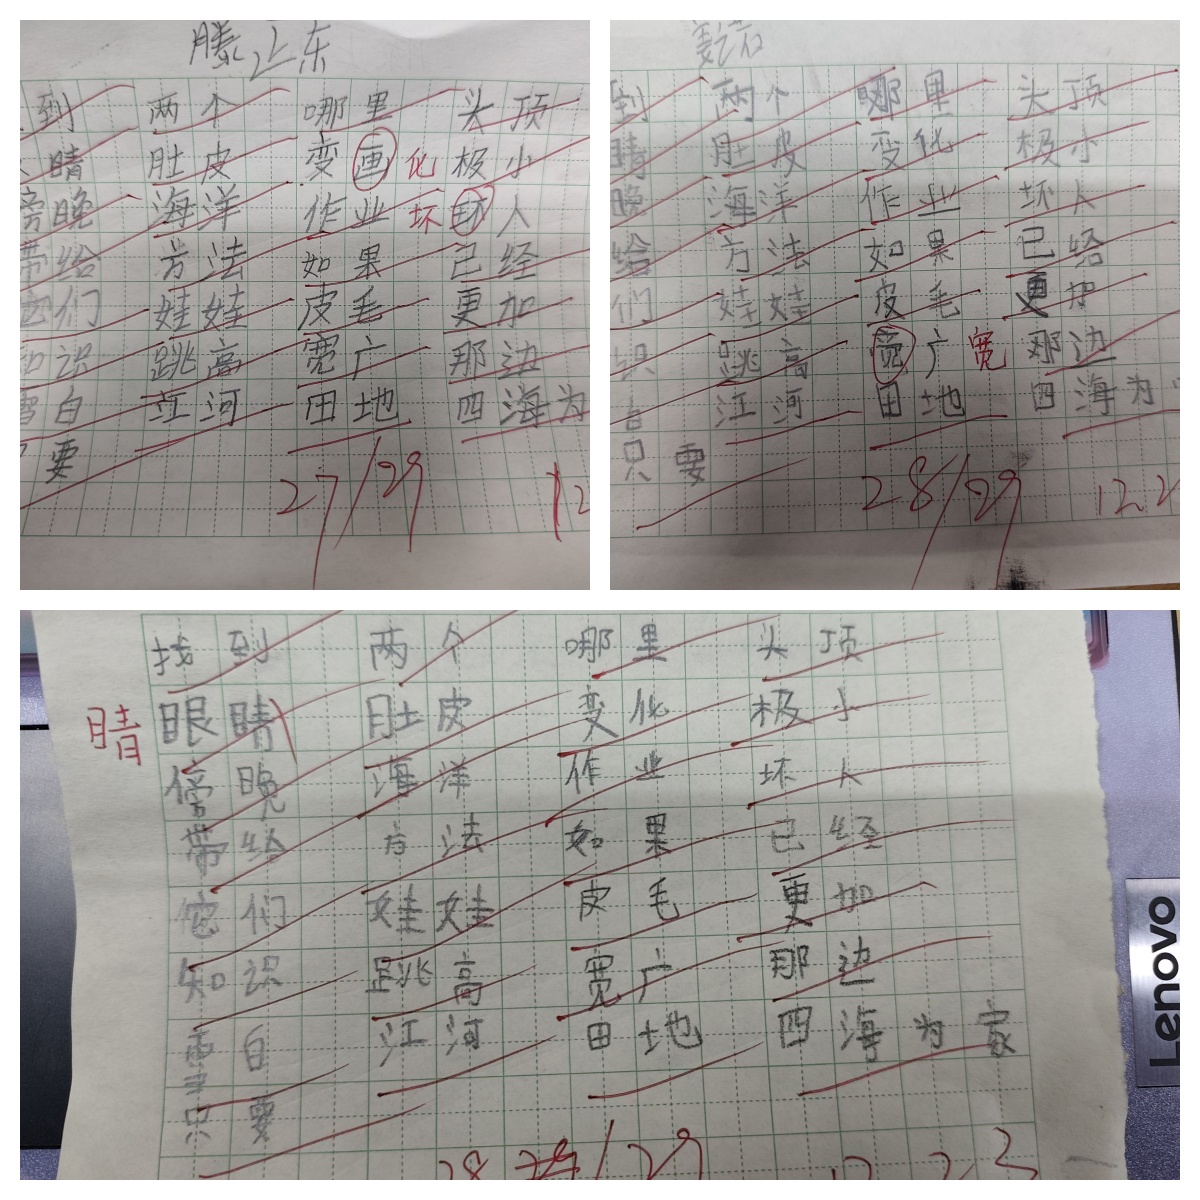 滕正东
到 两个 哪里 头顶
睛 肚皮 变画 化 极小
傍晚 海洋 作业 坏 坏人
带给 方法 如果 已经
们 娃娃 皮毛 更加
识 跳高 宽广 那边
雪白 江河 田地 四海为
要
27/29 12
到 两个 哪里 头顶
睛 肚皮 变化 极小
晚 海洋 作业 坏人
给 方法 如果 已给
们 娃娃 皮毛 更加
识 跳高 宽广 宽 那边
江河 田地 四海为
只要
28/29 12.2
找到 两个 哪里 头顶
睛 眼睛 肚皮 变化 极小
傍晚 海洋 作业 坏人
带给 方法 如果 已经
它们 娃娃 皮毛 更加
知识 跳高 宽广 那边
雪白 江河 田地 四海为家
只要
28 /29 12.23
Lenovo